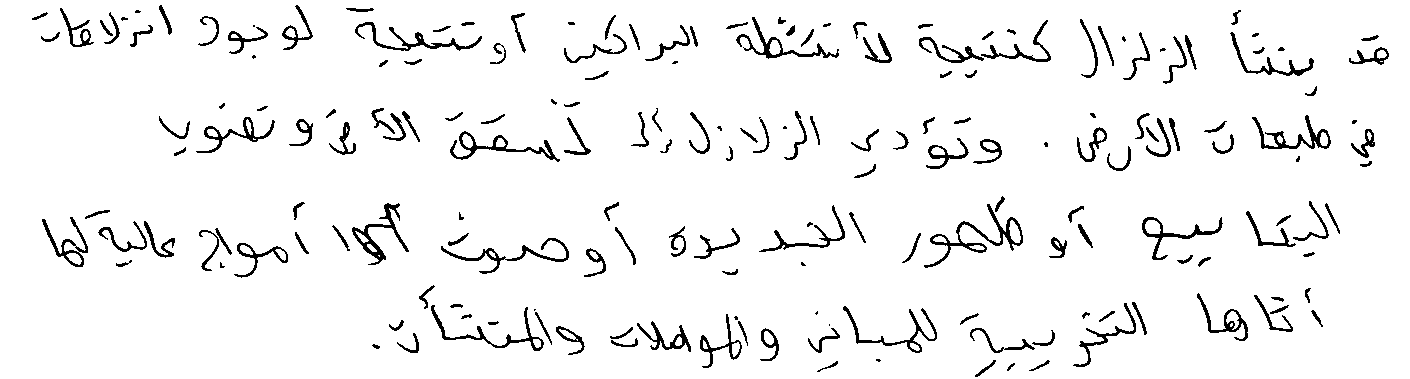 قد ينشأ الزلزال كنتيجة لأنشطة البراكين أو نتيجة لوجود انزلاقات
في طبقات الأرض. وتؤدي الزلازل إلى تشقق الأرض ونضوب
الينابيع أو ظهور الجديدة أو حدوث أمواج عالية لها
أثارها التخريبية للمباني والمواصلات والمنشأت.